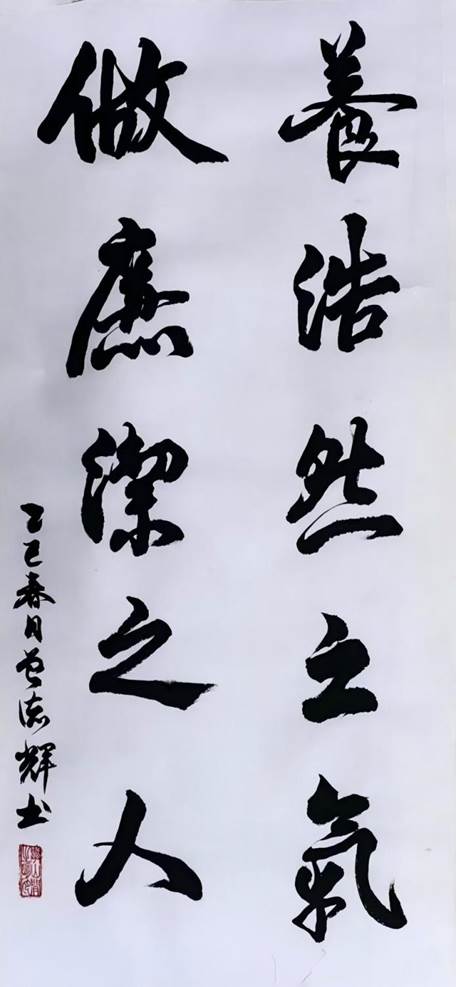 養浩然之氣
做廉潔之人
乙巳春日曾流輝书